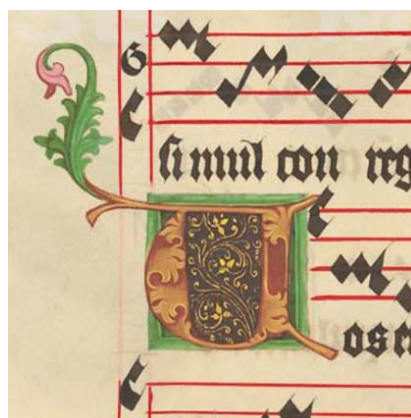 si mul con reg
Uos e